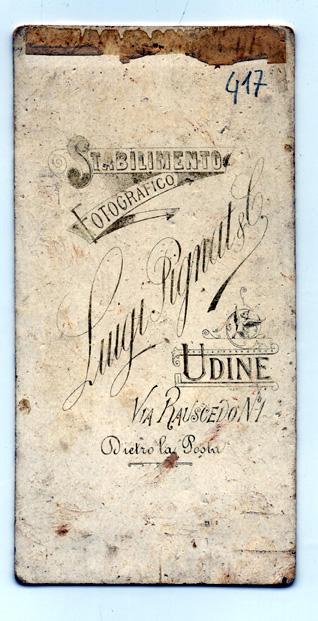 417
STABILIMENTO
FOTOGRAFICO
Luigi Pignat & C.
UDINE
VIA RAUSCEDO N. 1
Dietro la Posta